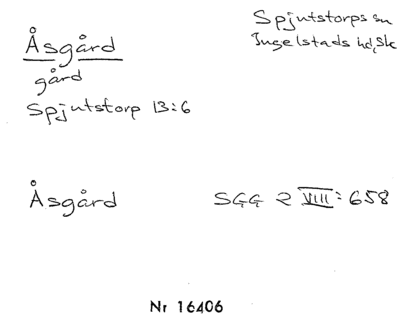 Åsgård
Spjutstorps sn
Ingelstads hd, Sk
gård
Spjutstorp 13:6
Åsgård
SGG 2 VIII: 658
Nr 16406